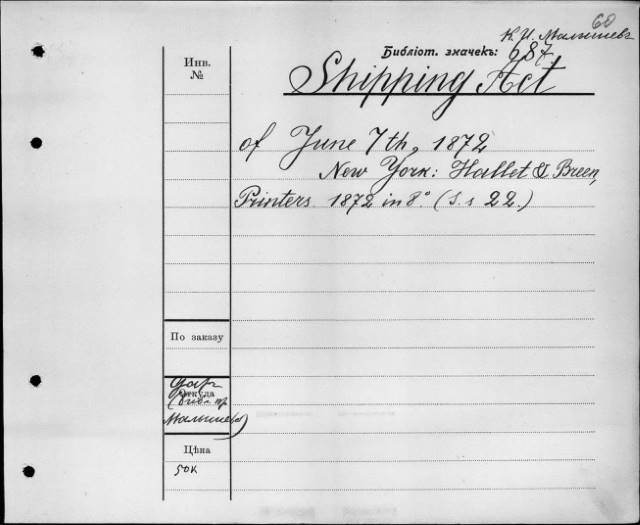 60
К. И. Малышевъ
Библіот. значекъ: 687
Инв.
№
Shipping Act
of June 7th, 1872
New York: Hallet & Breen,
Printers. 1872 in 8° (S. s 22.)
По заказу
Даръ
Откуда
Малышева)
Цѣна
50к